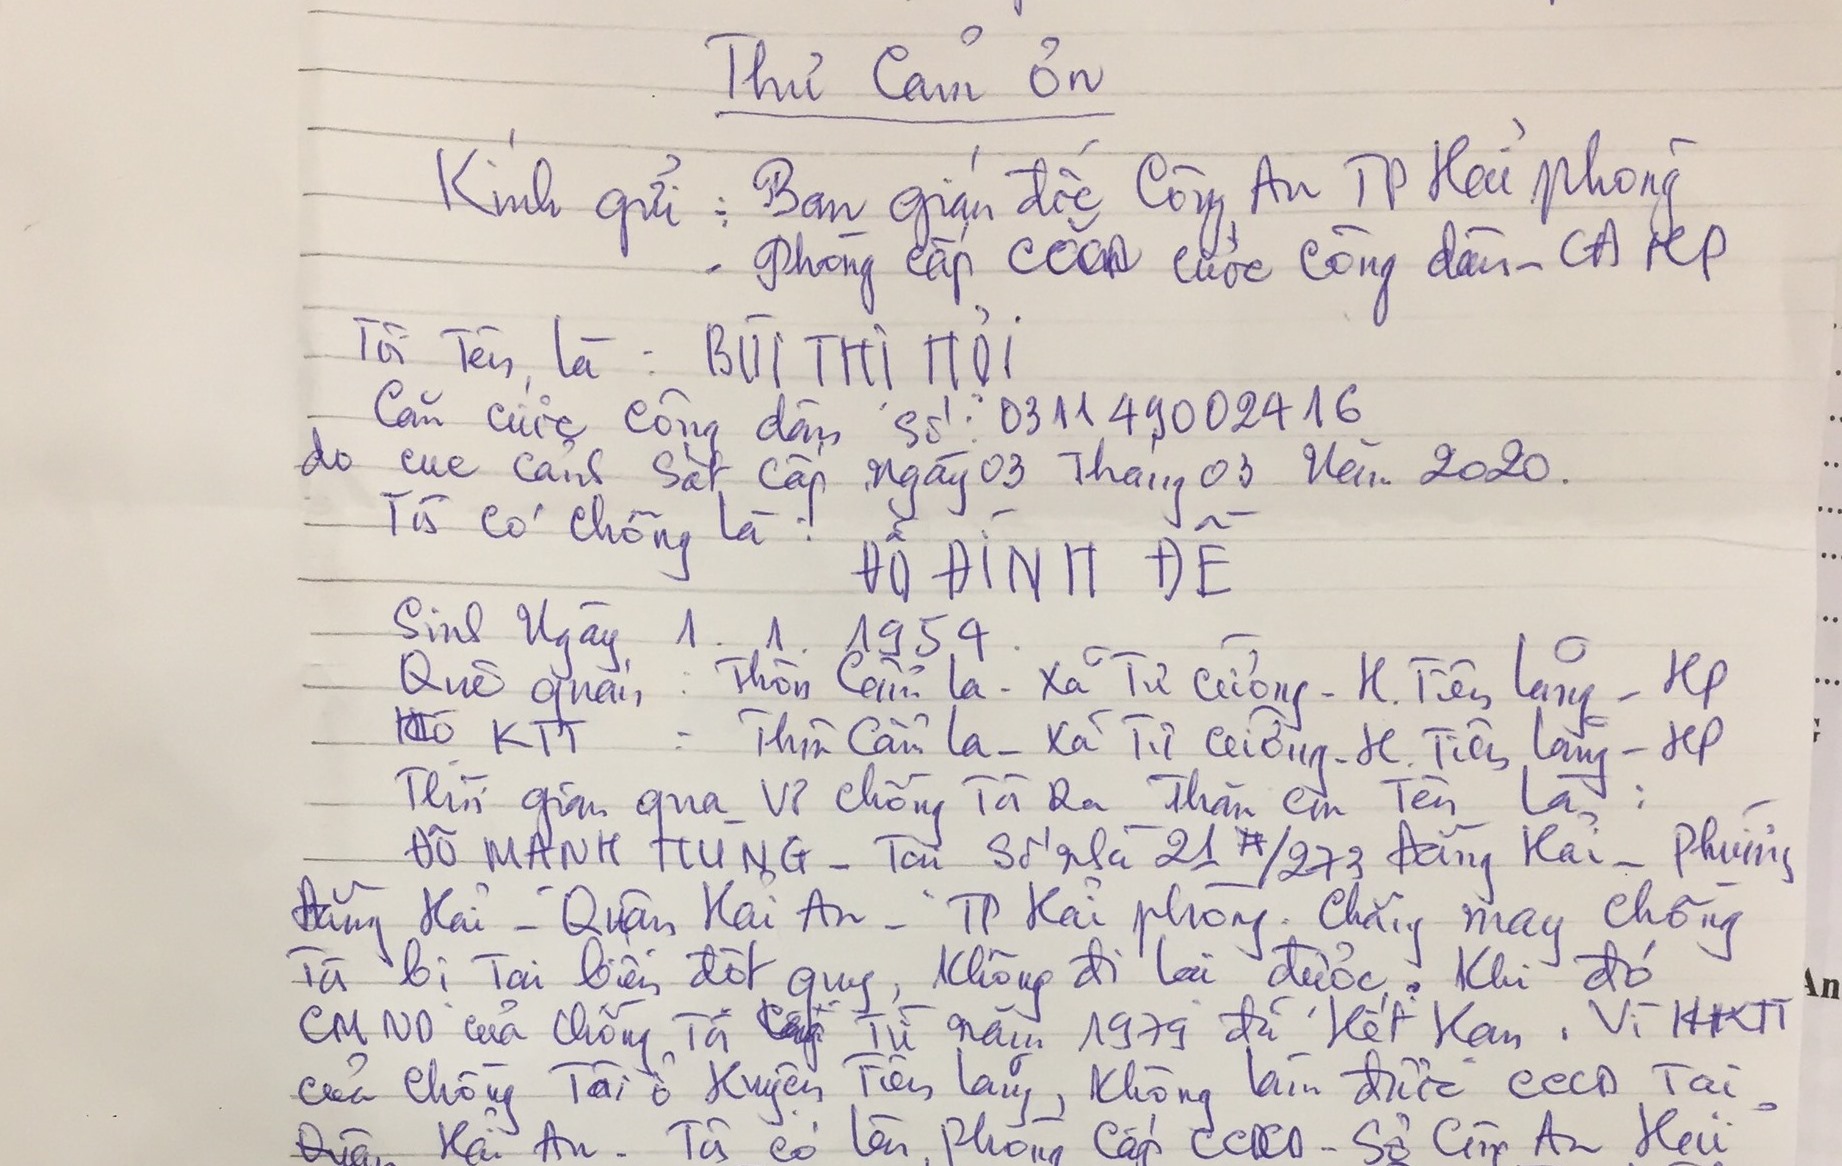 Thư Cảm ơn
Kính gửi : Ban giám đốc Công An TP Hải phòng
- Phòng cấp CCCD cước công dân - CA HP
Tôi Tên là : BÙI THỊ HỢI
Căn cước công dân số : 0311490002416
do cục cảnh sát cấp ngày 03 Tháng 03 Năm 2020.
Tôi có chồng là :
ĐỖ ĐÌNH ĐỄ
Sinh Ngày 1. 1. 1954.
Quê quán : Thôn Cẩm La - Xã Tự Cường - H. Tiên Lãng - HP
KTT : Thôn Cẩm La - Xã Tự Cường - H. Tiên Lãng - HP
Thời gian qua Vợ chồng Tôi Ra Thăm em Tên Là :
ĐỖ MẠNH HÙNG - Tại Số nhà 21 #/273 Đằng Hải - Phường
Đằng Hải - Quận Hải An - TP Hải phòng. Chẳng may chồng
Tôi bị Tai biến đột quỵ, Không đi lại được. Khi đó
CMND của chồng Tôi cấp Từ năm 1979 đã Hết Hạn. Vì HKTT
của chồng Tôi ở Huyện Tiên Lãng, Không làm được CCCD Tại
Quận Hải An - Tôi có lên phòng Cấp CCCD - Sở Công An Hải
An